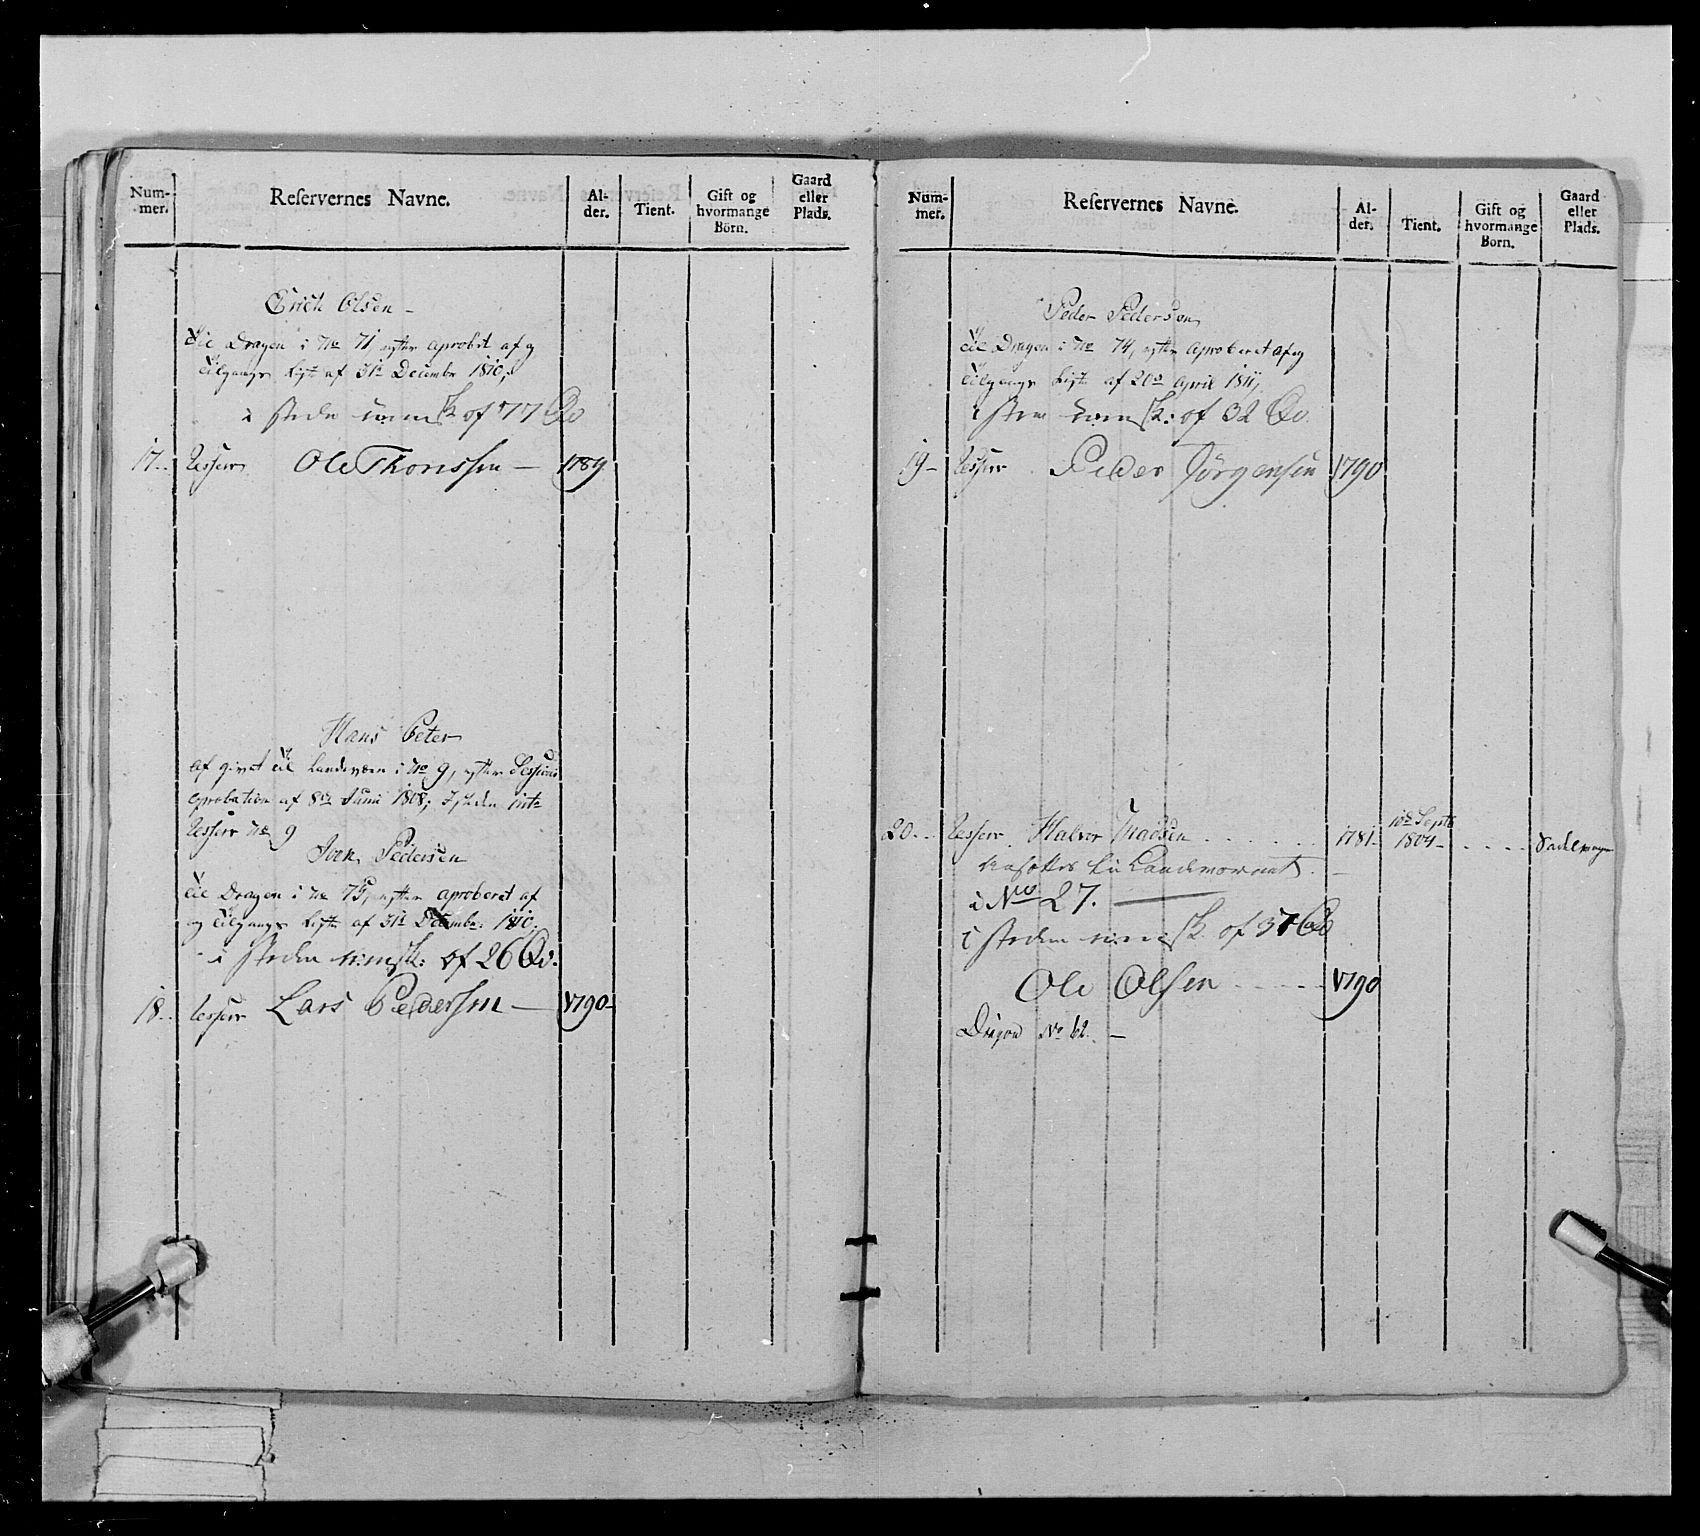 Num-
mer.
Reservernes Navne.
Al-
der.
Tient.
Gift og
hvormange
Börn.
Gaard
eller
Plads.
Erich Olsen -
til Dragon i No 71, efter aprobet af g
tilgangs Liste af 31te Decembr 1810;
i steden af 77
17. Reserv Ole Thorissen - 1789
Hans Peter
af givet til Landeværn i No 9, efter Sessions
aprobation af 8de Junii 1808; I steden
Reserv No 9
Pedersen
til Dragon i No 75, efter aproberet af
og tilgangs Liste af 31te Decembr: 1810.
i steden af 26
18. Reserv Lars Pedersen - 1790-
Num-
mer.
Reservernes Navne.
Al-
der.
Tient.
Gift og
hvormange
Born.
Gaard
eller
Plads.
Peder Pedersen
til Dragon i No 74, efter aproberet af g
tilgangs Liste af 20de April 1811,
af 32
19- Reserv Peder Jörgensen 1790
20. Reserv. Halvor Madsen 1781- 10de Septb
1804-
til
i No 27.
i steden af 37
Ole Olsen 1790
Dragon No 62. -